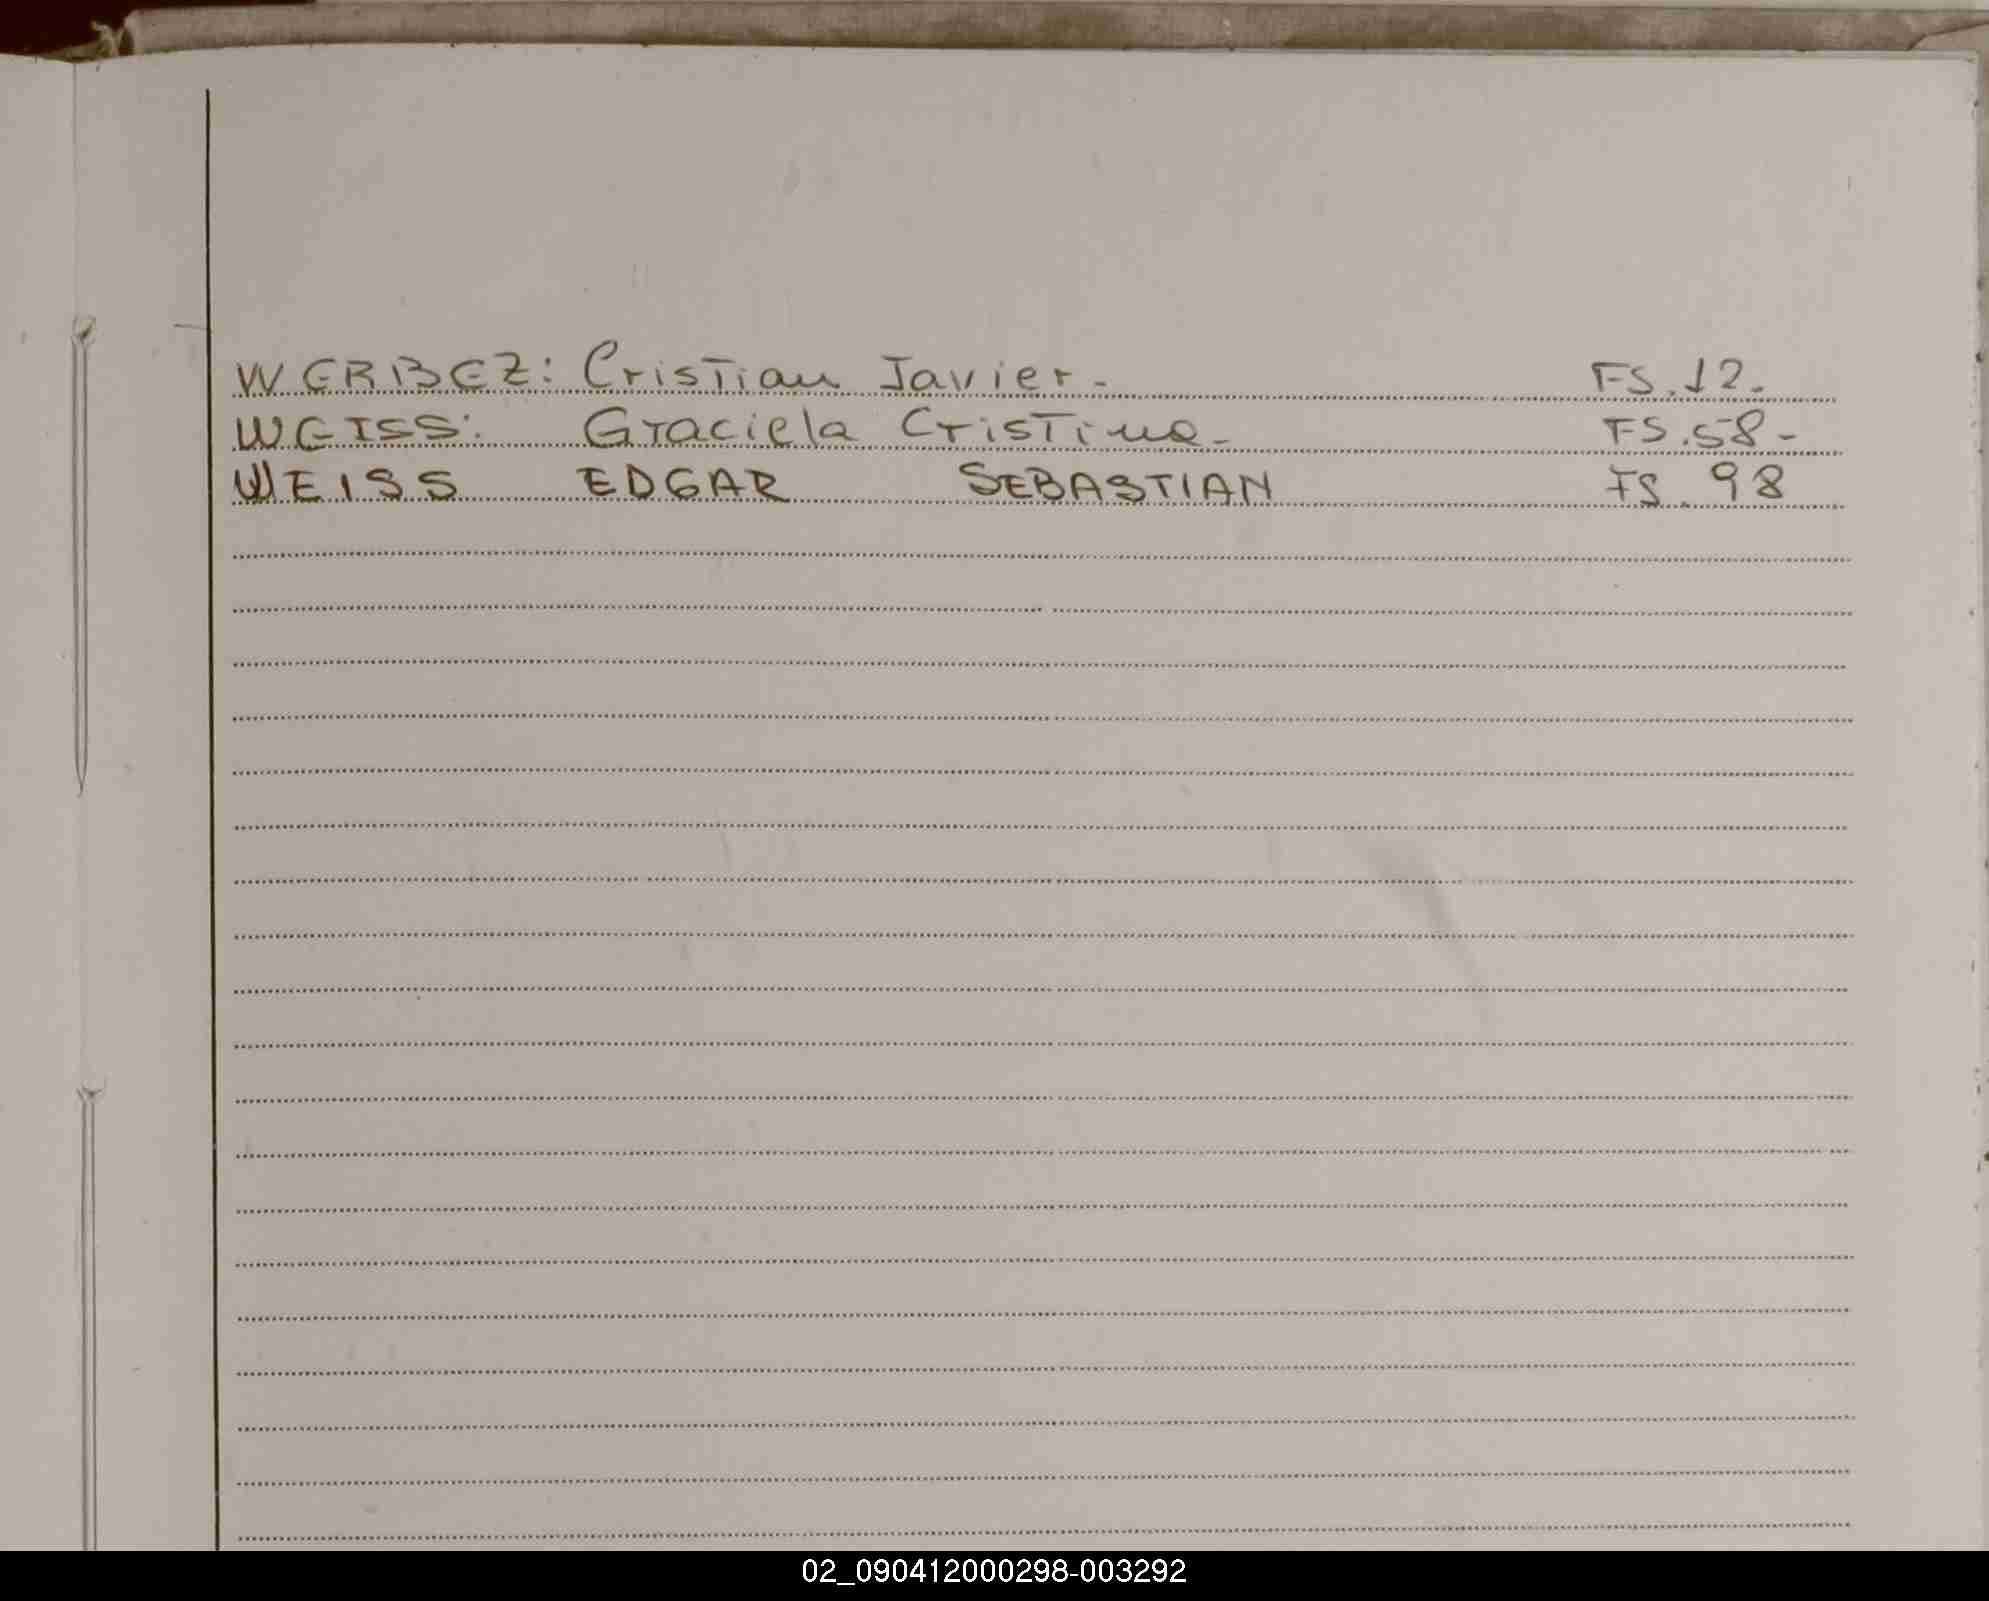 WERBEZ: Cristian Javier.- FS.12.
WEISS: Graciela Cristina.- FS.58-
WEISS EDGAR SEBASTIAN FS.98
02_090412000298-003292